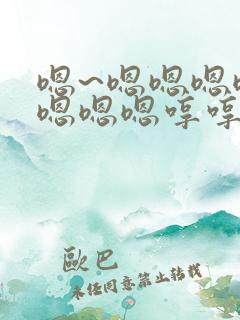 嗯~嗯嗯嗯
嗯嗯嗯哼哼
歐巴
未经同意禁止转载